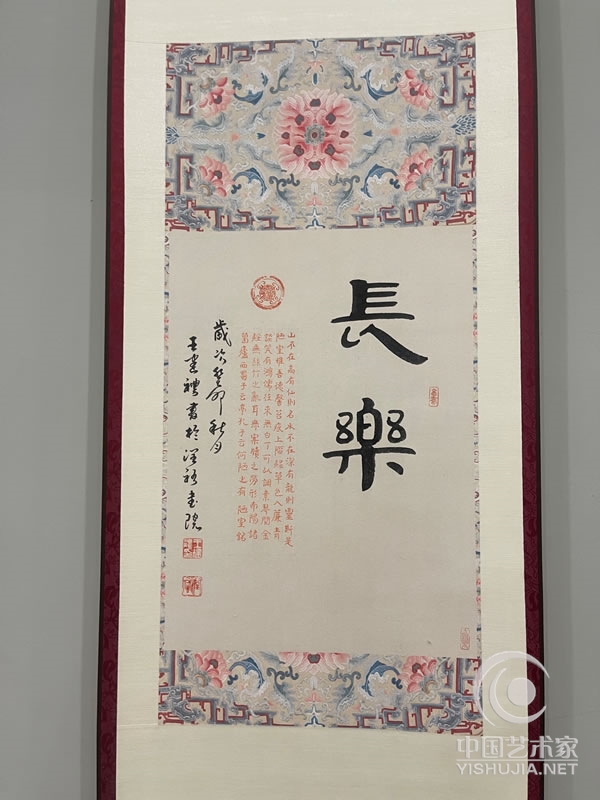 長樂
山不在高有仙則名水不在深有龍則靈斯是
陋室惟吾德馨苔痕上階綠草色入簾青
談笑有鴻儒往來無白丁可以調素琴閱金
經無絲竹之亂耳無案牘之勞形南陽諸
葛廬西蜀子云亭孔子云何陋之有 陋室銘
歲次癸卯秋月
王禮書於書院
中国艺术家
YISHUJIA.NET